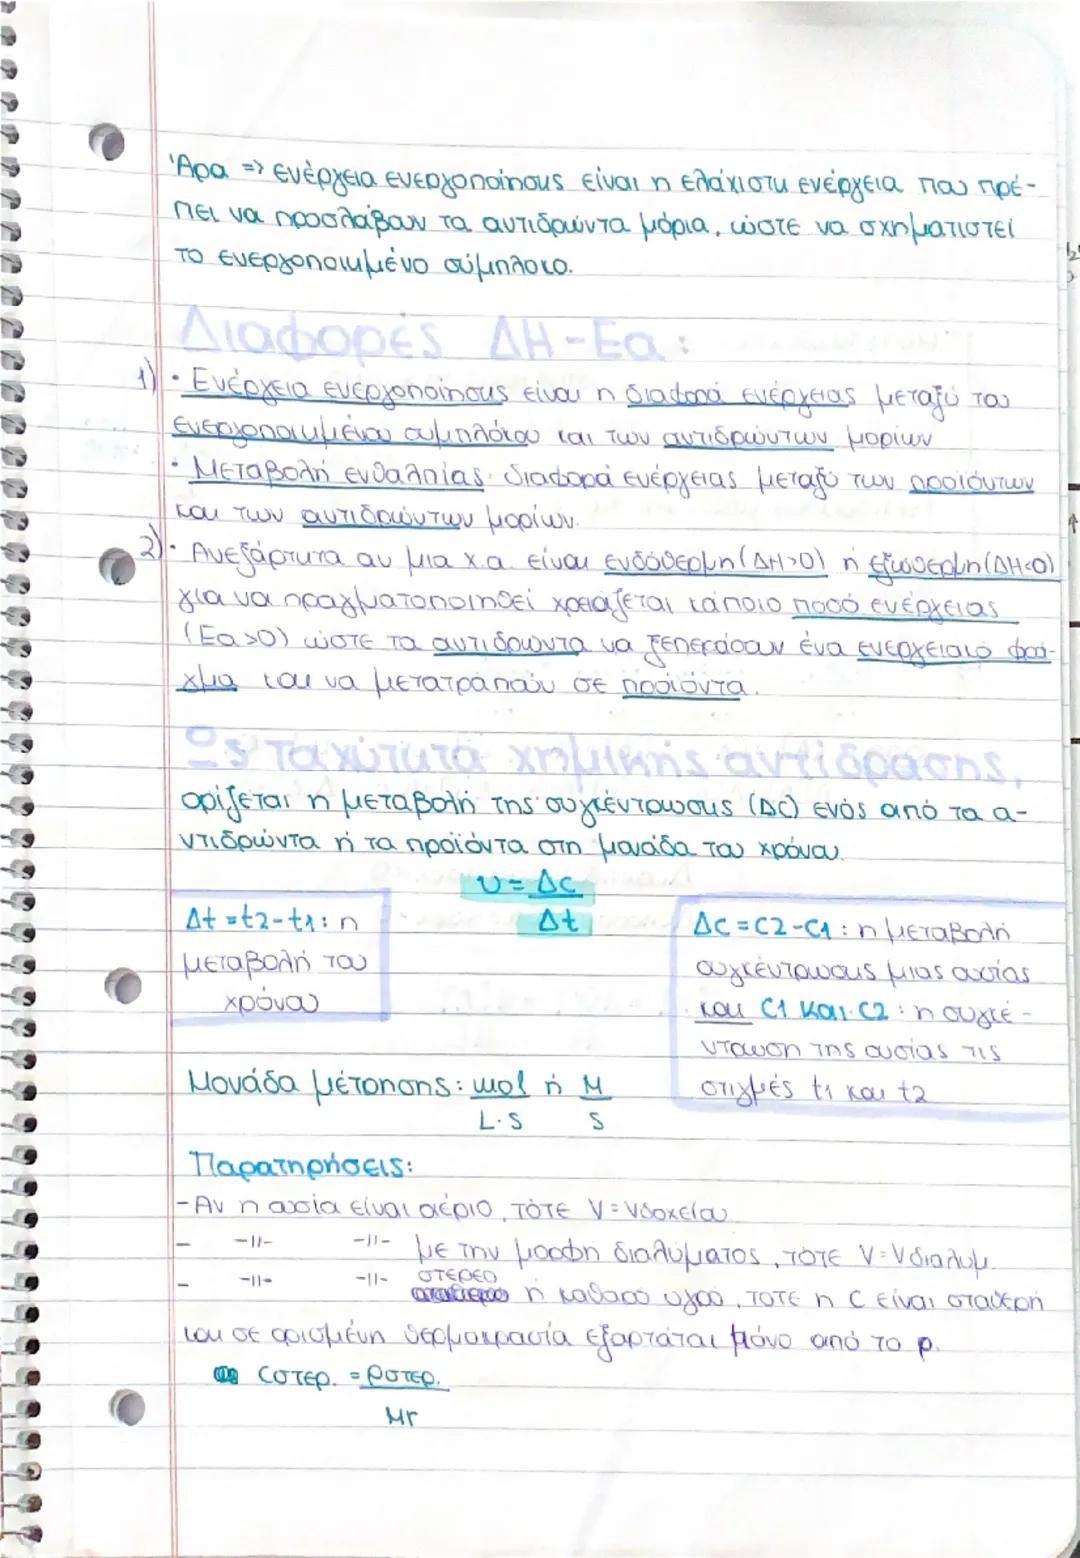 Άρα => ενέργεια ενεργοποίησης είναι η ελάχιστη ενέργεια που πρέ-
πει να προσλάβουν τα αντιδρώντα μόρια, ώστε να σχηματιστεί
το ενεργοποιημένο σύμπλοκο.
Διαφορές ΔΗ-Εα:
1) · Ενέργεια ενέργοποίησης είναι η διαφορά ενέργειας μεταξύ του
ενεργοποιημένου συμπλόκου και των αντιδρώντων μορίων
· Μεταβολή ενθαλπίας: διαφορά ενέργειας μεταξύ των προϊόντων
και των αντιδρώντων μορίων.
2) · Ανεξάρτητα αν μια χ.α. είναι ενδόθερμη (ΔΗ>0) ή εξώθερμη (ΔΗ<0)
για να πραγματοποιηθεί χρειάζεται κάποιο ποσό ενέργειας
(Εa>0) ώστε τα αντιδρώντα να ξεπεράσουν ένα ενεργειακό φρά-
γμα και να μετατραπούν σε προϊόντα.
Ως ταχύτητα χημικής αντίδρασης,
ορίζεται η μεταβολή της συγκέντρωσης (ΔC) ενός από τα α-
ντιδρώντα ή τα προϊόντα στη μονάδα του χρόνου.
υ = Δc
Δt
Δt = t2-t1: η
μεταβολή του
χρόνου
ΔC = C2-C1 : η μεταβολή
συγκέντρωσης μιας ουσίας
και C1 και C2 : η συγκέ-
ντρωση της ουσίας τις
στιγμές t1 και t2
Μονάδα μέτρησης: mol ή M
L·s s
Παρατηρήσεις:
- Αν η ουσία είναι αέριο, τότε V = Vδοχείου
- -11- -11- με την μορφή διαλύματος, τότε V = Vδιαλυμ.
- -11- -11- στερεό
ή καθαρό υγρό, τότε η C είναι σταθερή
και σε ορισμένη θερμοκρασία εξαρτάται μόνο από το ρ.
Cστερ. = ρστερ.
Mr